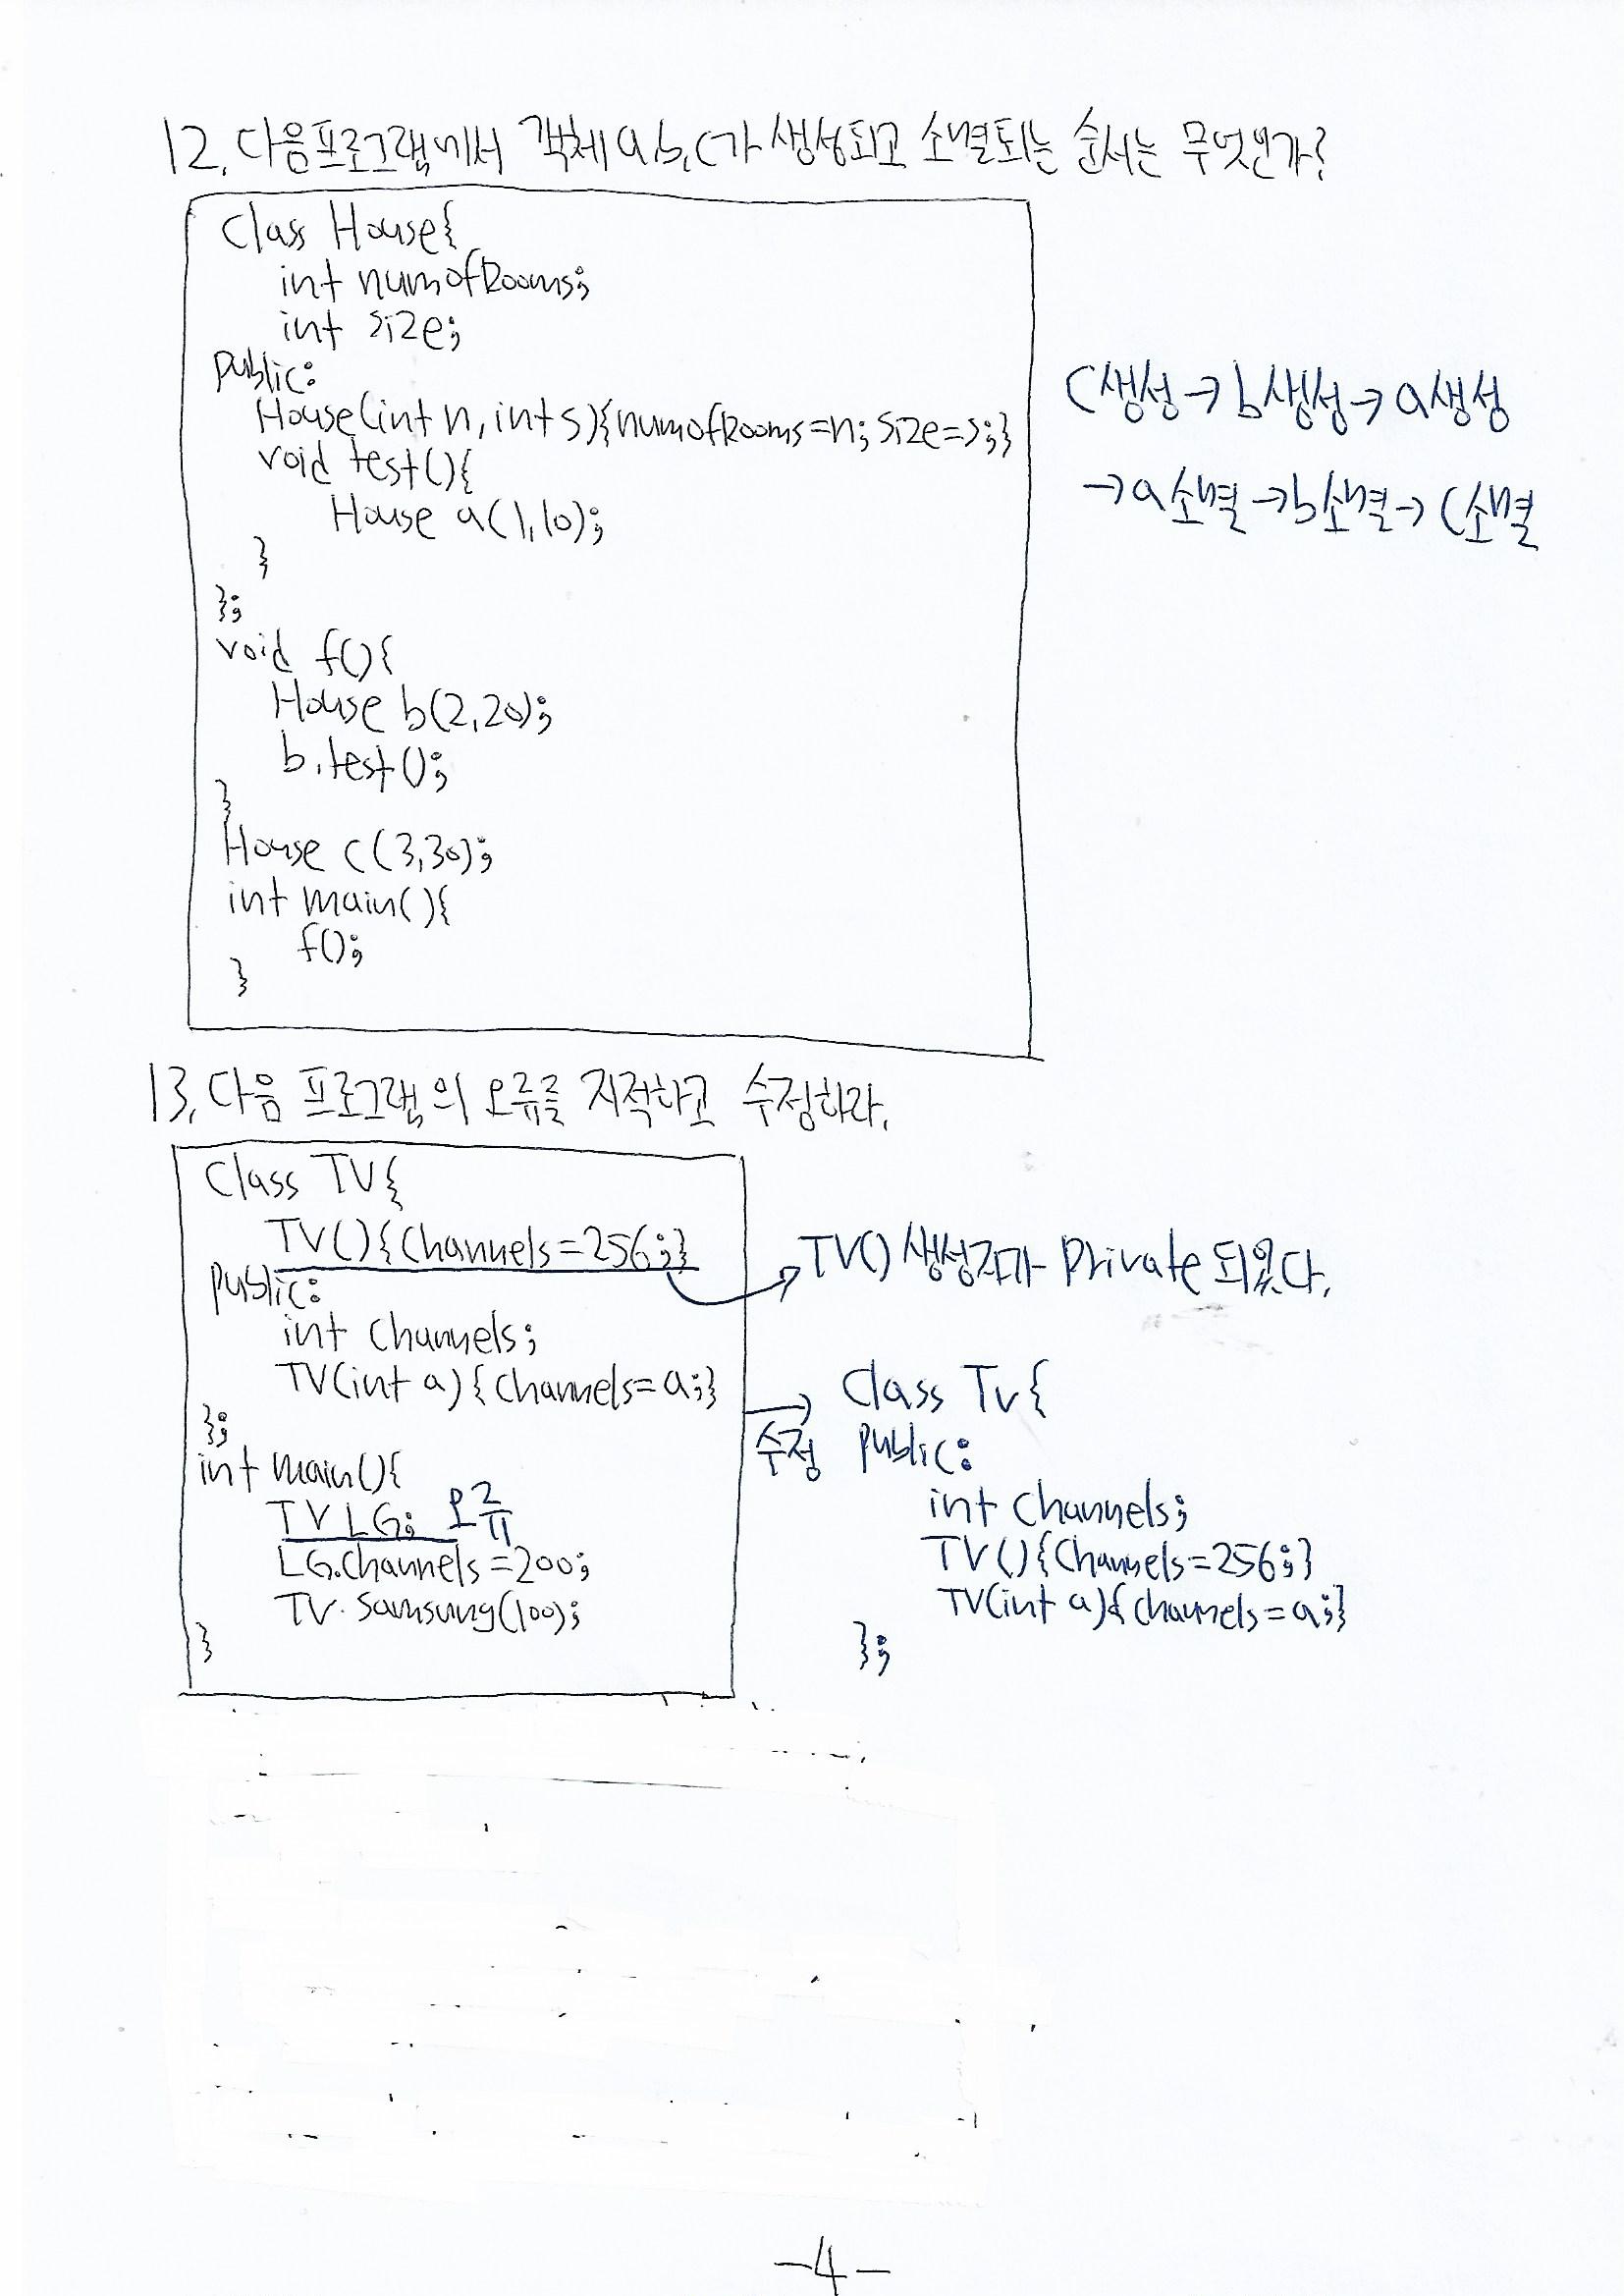 12. 다음프로그램에서 객체 a,b,c가 생성되고 소멸되는 순서는 무엇인가?
Class House{
int numofRooms;
int size;
Public:
House(int n, int s){numofRooms=n; size=s;}
void test(){
House a(1,10);
}
};
void f(){
House b(2,20);
b.test();
}
House c(3,30);
int main(){
f();
}
C생성→b생성→a생성
→a소멸→b소멸→C소멸
13. 다음 프로그램의 오류를 지적하고 수정하라.
Class TV{
TV(){Channels=256;}
Public:
int Channels;
TV(int a){channels=a;}
};
int main(){
TV LG; 오류
LG.Channels=200;
TV. Samsung(100);
}
TV() 생성자가 Private 되있다.
→ 수정
Class Tv{
Public:
int Channels;
TV(){Channels=256;}
TV(int a){channels=a;}
};
-4-